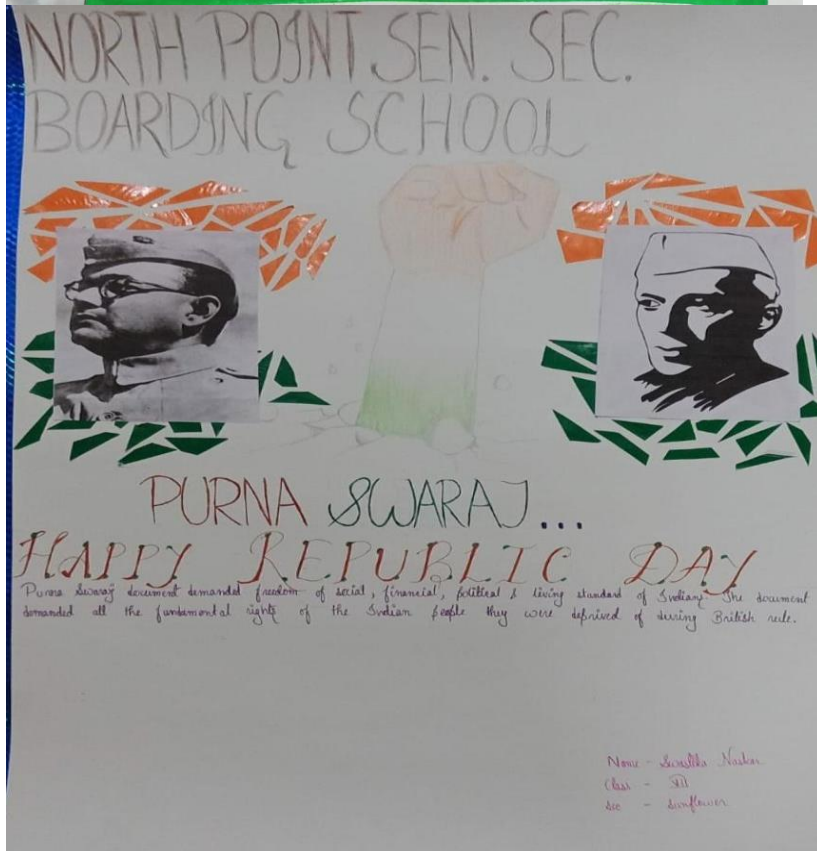 NORTH POINT SEN. SEC.
BOARDING SCHOOL
PURNA SWARAJ...
HAPPY REPUBLIC DAY
Purna Swaraj document demanded freedom of social, financial, political & living standard of Indians. The document
demanded all the fundamental rights of the Indian people they were deprived of during British rule.
Name - Naskar
Class -
Sec - Sunflower